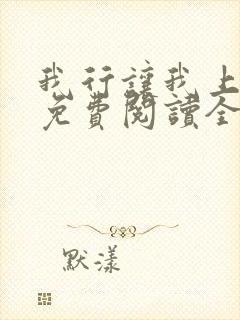 我行讓我上
免費閱讀全
默漾